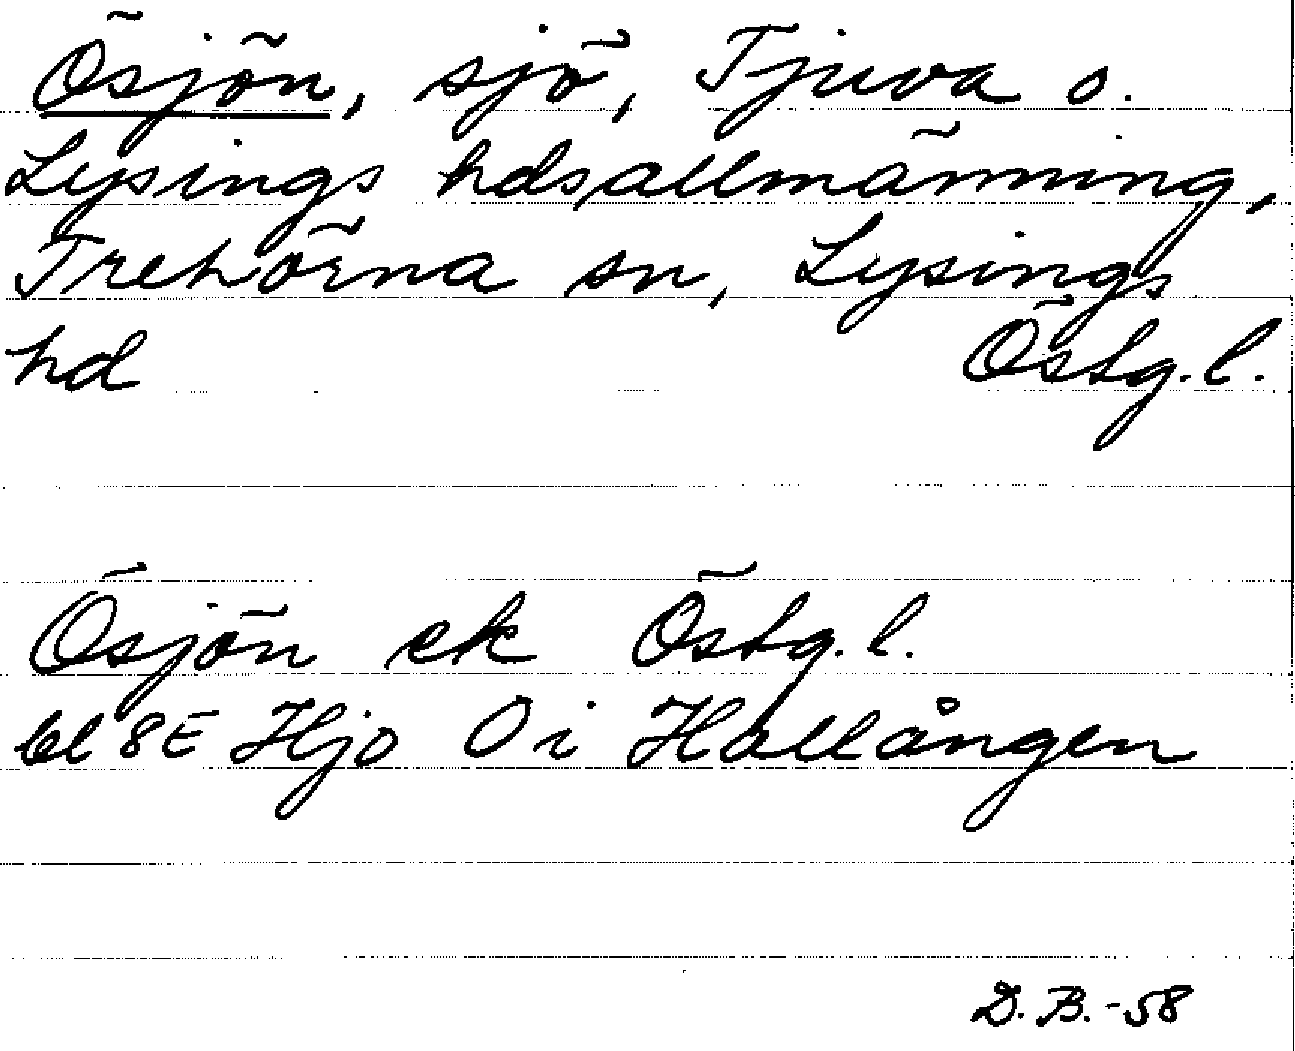 Ösjön, sjö, Tjuva o.
Lysings hdsallmänning,
Trehörna sn, Lysings
hd Östg. l.
Ösjön ek Östg. l.
bl 8E Hjo Oi Hallången
D. B. -58